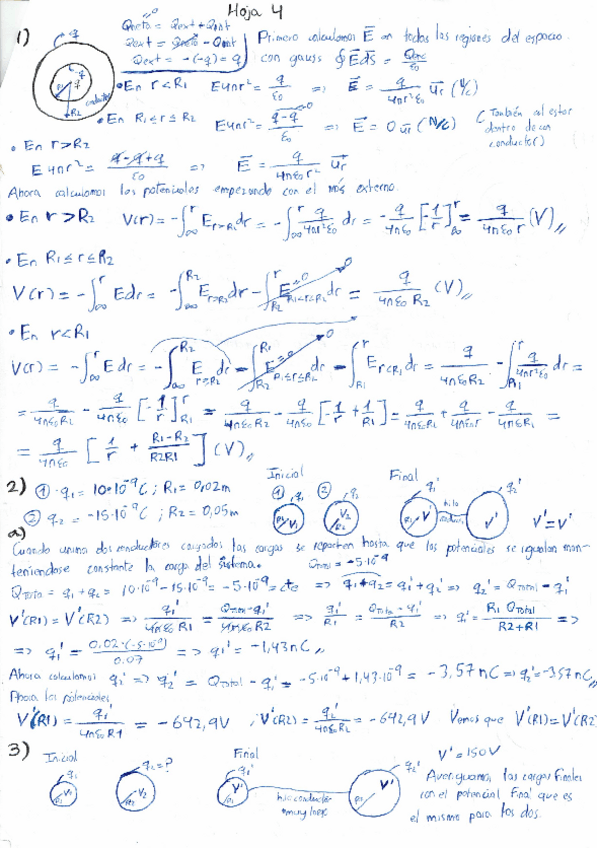 Hoja 4
1) Qneto = Qext + Qint
Qext = Qneto - Qint
Qext = -(-q) = q
Primero calculamos E⃗ en todas las regiones del espacio
con gauss ∮E⃗ds⃗ = Qenc/ε0
• En r<R1 E4πr² = q/ε0 => E⃗ = q/4πr²ε0 u⃗r (N/C)
• En R1≤r≤R2 E4πr² = q-q/ε0 => E⃗ = 0 u⃗r (N/C) (También al estar dentro de un conductor)
• En r>R2
E4πr² = q-q+q/ε0 => E⃗ = q/4πε0r² u⃗r
Ahora calculamos los potenciales empezando con el más externo.
• En r>R2 V(r) = -∫∞^r E r>R2 dr = -∫∞^r q/4πr²ε0 dr = -q/4πε0 [-1/r]∞^r = q/4πε0r (V)
• En R1≤r≤R2
V(r) = -∫∞^r Edr = -∫∞^R2 E r>R2 dr - ∫R2^r E R1≤r≤R2 dr = q/4πε0R2 (V)
• En r<R1
V(r) = -∫∞^r Edr = -∫∞^R2 E dr - ∫R2^R1 E R1≤r≤R2 dr - ∫R1^r E r<R1 dr = q/4πε0R2 - ∫R1^r q/4πr²ε0 dr =
= q/4πε0R2 - q/4πε0 [-1/r]R1^r = q/4πε0R2 - q/4πε0 [-1/r + 1/R1] = q/4πε0R2 + q/4πε0r - q/4πε0R1 =
= q/4πε0 [1/r + R1-R2/R2R1] (V)
2) ① q1 = 10·10⁻⁹ C; R1 = 0,02m
② q2 = -15·10⁻⁹ C; R2 = 0,05m
Inicial
① q1 ② q2
R1 V1 V2 R2
Final
q1' q2'
R1 V' hilo conductor V' V'=V'
a)
Cuando unimos dos conductores cargados las cargas se reparten hasta que los potenciales se igualan man-
teniendose constante la carga del sistema. Qtotal = -5·10⁻⁹
Qtotal = q1+q2 = 10·10⁻⁹ - 15·10⁻⁹ = -5·10⁻⁹ = cte => q1+q2 = q1'+q2' => q2' = Qtotal - q1'
V'(R1) = V'(R2) => q1'/4πε0R1 = Qtotal-q1'/4πε0R2 => q1'/R1 = Qtotal-q1'/R2 => q1' = R1 Qtotal/R2+R1 =>
=> q1' = 0,02·(-5·10⁻⁹)/0,07 => q1' = -1,43nC
Ahora calculamos q2' => q2' = Qtotal - q1' = -5·10⁻⁹ + 1,43·10⁻⁹ = -3,57nC => q2' = -3,57nC
Ahora los potenciales
V'(R1) = q1'/4πε0R1 = -642,9V ; V'(R2) = q2'/4πε0R2 = -642,9V Vemos que V'(R1)=V'(R2)
3) Inicial
q1 q2=?
R1 V1 R2 V2
Final
q1' q2'
R1 V' hilo conductor muy largo R2 V'
V' = 150V
Averiguamos las cargas finales
con el potencial final que es
el mismo para los dos.